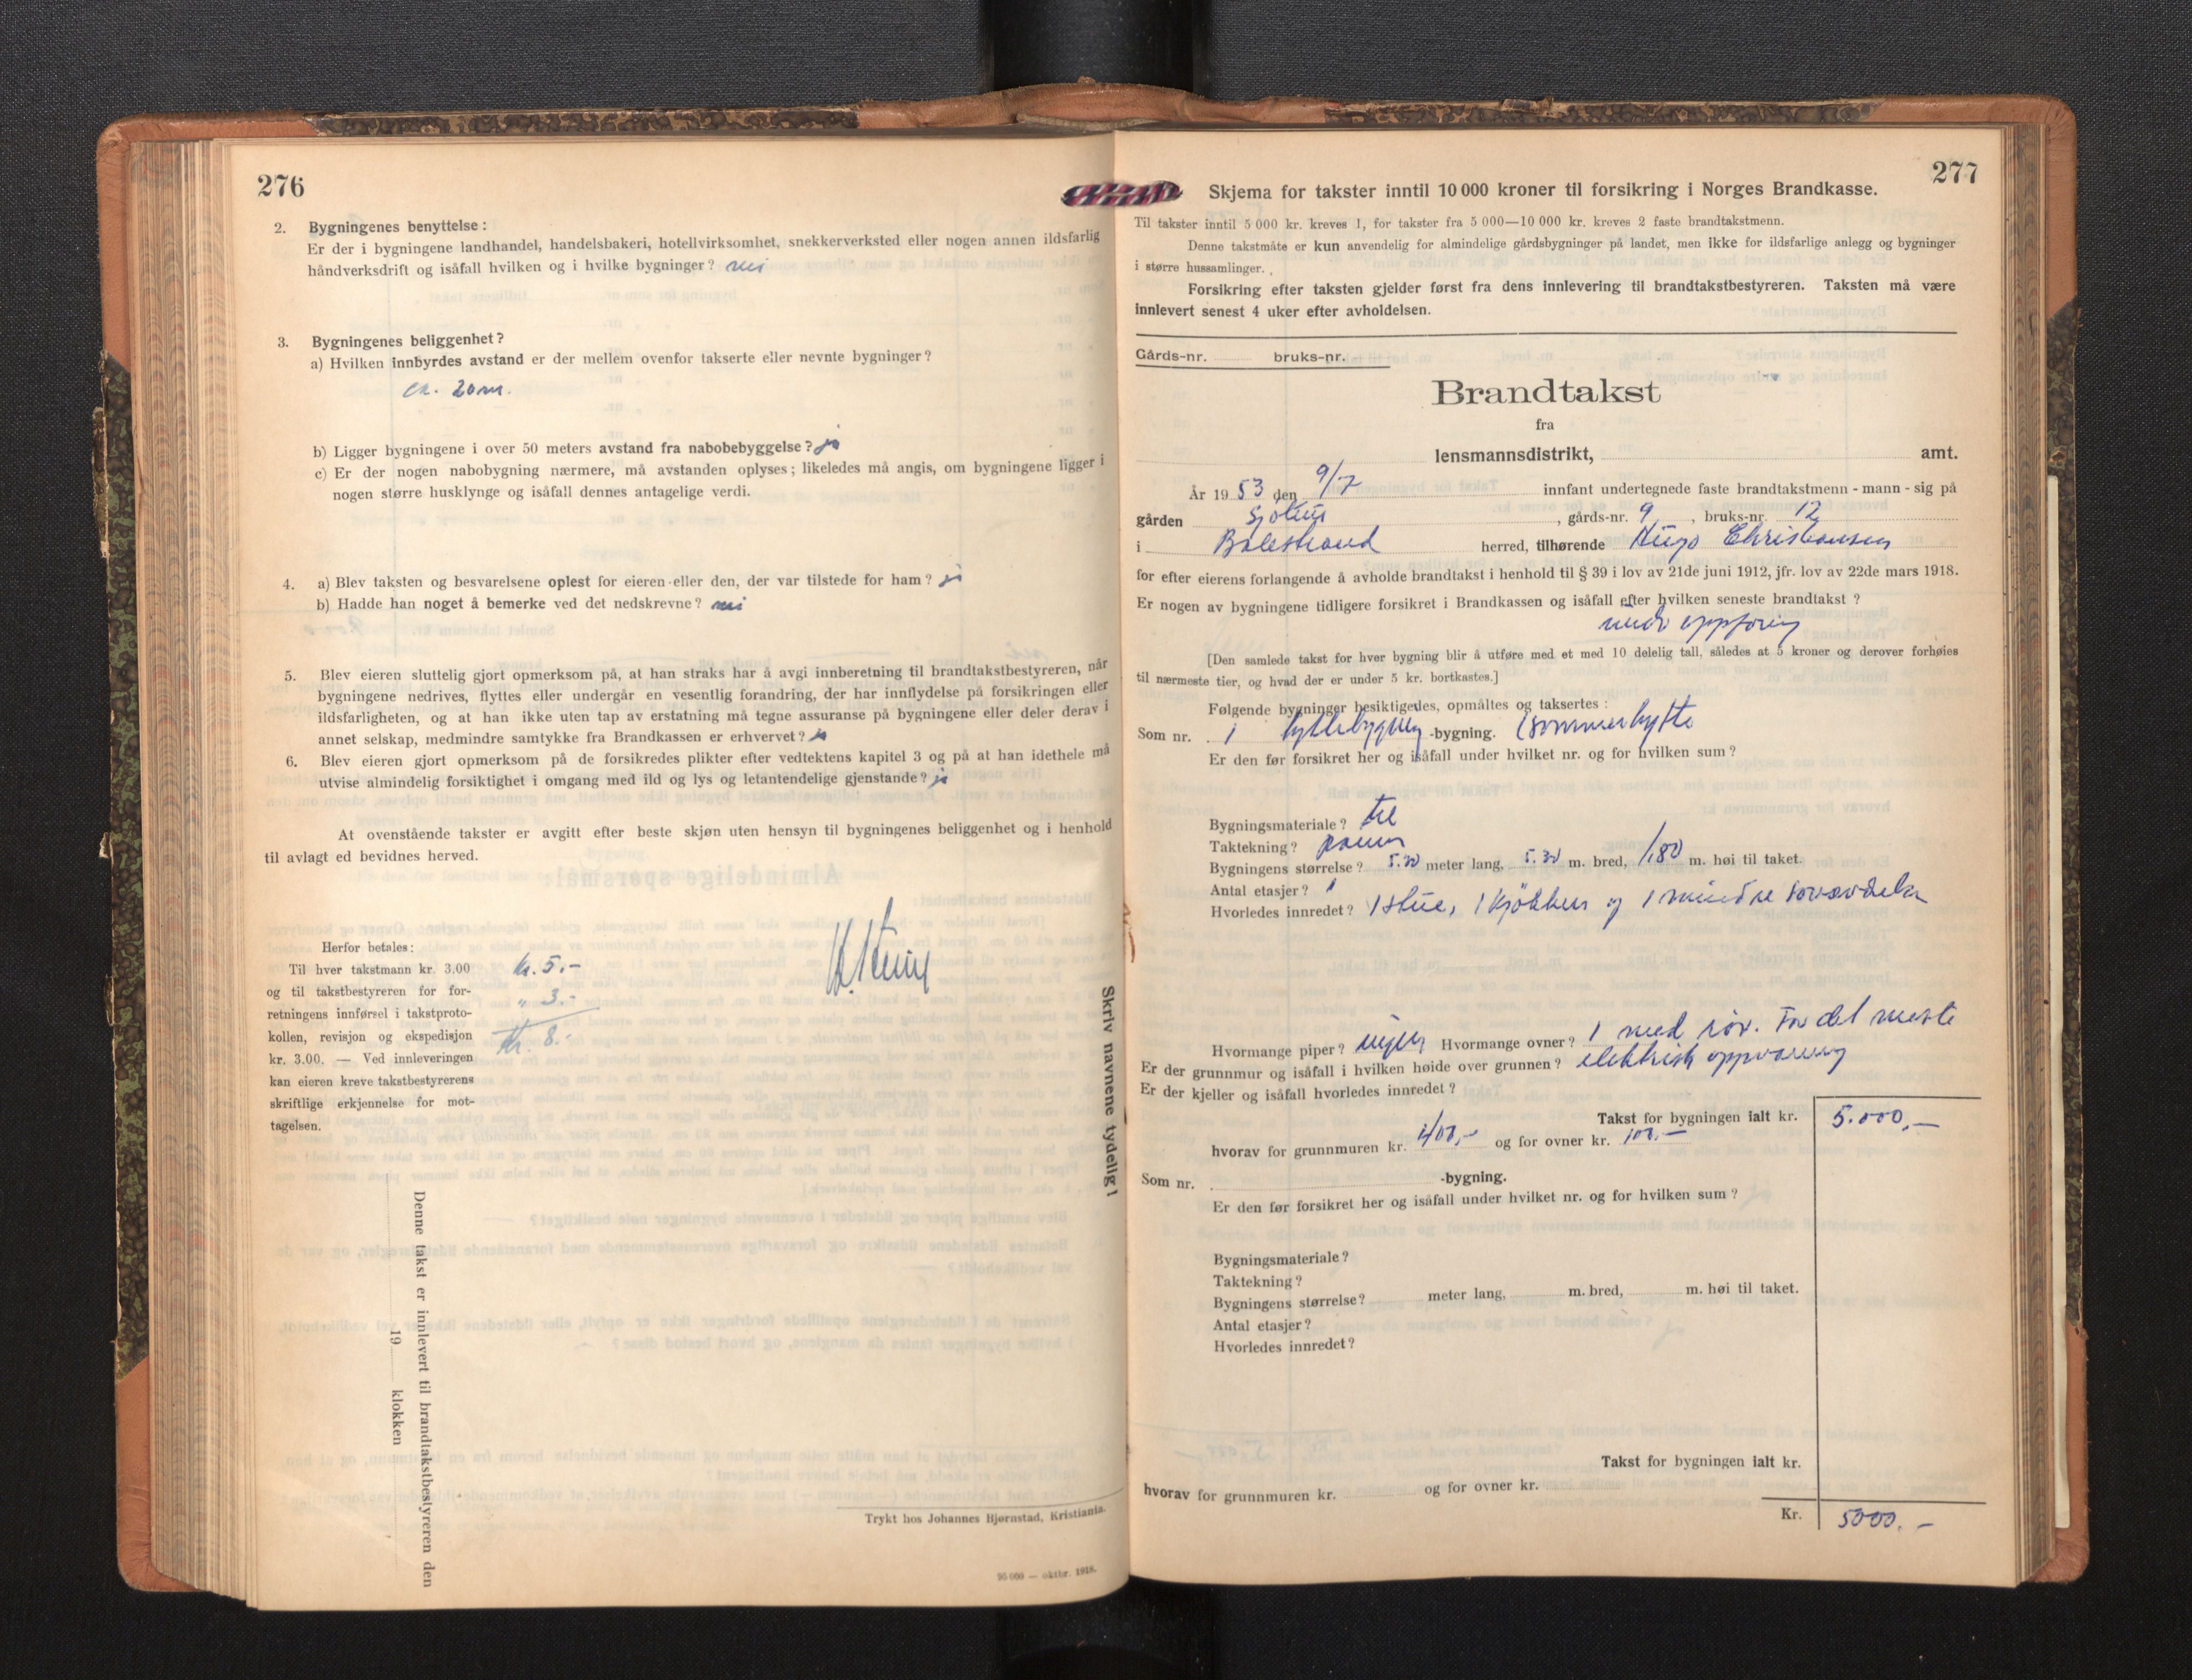 276
2. Bygningenes benyttelse:
Er der i bygningene landhandel, handelsbakeri, hotellvirksomhet, snekkerverksted eller nogen annen ildsfarlig
håndverksdrift og isåfall hvilken og i hvilke bygninger? nei
3. Bygningenes beliggenhet?
a) Hvilken innbyrdes avstand er der mellem ovenfor takserte eller nevnte bygninger?
ca. 20 m.
b) Ligger bygningene i over 50 meters avstand fra nabobebyggelse? ja
c) Er der nogen nabobygning nærmere, må avstanden oplyses; likeledes må angis, om bygningene ligger i
nogen større husklynge og isåfall dennes antagelige verdi.
4. a) Blev taksten og besvarelsene oplest for eieren eller den, der var tilstede for ham? ja
b) Hadde han noget å bemerke ved det nedskrevne? nei
5. Blev eieren sluttelig gjort opmerksom på, at han straks har å avgi innberetning til brandtakstbestyreren, når
bygningene nedrives, flyttes eller undergår en vesentlig forandring, der har innflydelse på forsikringen eller
ildsfarligheten, og at han ikke uten tap av erstatning må tegne assuranse på bygningene eller deler derav i
annet selskap, medmindre samtykke fra Brandkassen er erhvervet? ja
6. Blev eieren gjort opmerksom på de forsikredes plikter efter vedtektens kapitel 3 og på at han idethele må
utvise almindelig forsiktighet i omgang med ild og lys og letantendelige gjenstande? ja
At ovenstående takster er avgitt efter beste skjøn uten hensyn til bygningenes beliggenhet og i henhold
til avlagt ed bevidnes herved.
Herfor betales:
Til hver takstmann kr. 3.00 kr. 5.-
og til takstbestyreren for for- " 3.-
retningens innførsel i takstproto-
kollen, revisjon og ekspedisjon kr. 8.-
kr. 3.00. — Ved innleveringen
kan eieren kreve takstbestyrerens
skriftlige erkjennelse for mot-
tagelsen.
Skriv navnene tydelig!
Denne takst er innlevert til brandtakstbestyreren den
19 klokken
Trykt hos Johannes Bjørnstad, Kristiania.
95 000 — oktbr. 1918.
277
Skjema for takster inntil 10 000 kroner til forsikring i Norges Brandkasse.
Til takster inntil 5 000 kr. kreves 1, for takster fra 5 000—10 000 kr. kreves 2 faste brandtakstmenn.
Denne takstmåte er kun anvendelig for almindelige gårdsbygninger på landet, men ikke for ildsfarlige anlegg og bygninger
i større hussamlinger.
Forsikring efter taksten gjelder først fra dens innlevering til brandtakstbestyreren. Taksten må være
innlevert senest 4 uker efter avholdelsen.
Gårds-nr. bruks-nr.
Brandtakst
fra
lensmannsdistrikt, amt.
År 1953 den 9/7 innfant undertegnede faste brandtakstmenn - mann - sig på
gården Sjøtun, gårds-nr. 9, bruks-nr. 12
i Balestrand herred, tilhørende Hugo Christiansen
for efter eierens forlangende å avholde brandtakst i henhold til § 39 i lov av 21de juni 1912, jfr. lov av 22de mars 1918.
Er nogen av bygningene tidligere forsikret i Brandkassen og isåfall efter hvilken seneste brandtakst?
under oppføring
[Den samlede takst for hver bygning blir å utføre med et med 10 delelig tall, således at 5 kroner og derover forhøies
til nærmeste tier, og hvad der er under 5 kr. bortkastes.]
Følgende bygninger besiktigedes, opmåltes og taksertes:
Som nr. 1 hyttebygning -bygning. (sommerhytte
Er den før forsikret her og isåfall under hvilket nr. og for hvilken sum?
Bygningsmateriale? tre
Taktekning?
Bygningens størrelse? 5.30 meter lang, 5.30 m. bred, 1,80 m. høi til taket.
Antal etasjer? 1
Hvorledes innredet? 1 stue, 1 kjøkken og 1 mindre soveavdeling
Hvormange piper? ingen Hvormange ovner? 1 med rør. For det meste
Er der grunnmur og isåfall i hvilken høide over grunnen? elektrisk oppvarming
Er der kjeller og isåfall hvorledes innredet?
Takst for bygningen ialt kr. 5.000,-
hvorav for grunnmuren kr. 400,- og for ovner kr. 100.-
Som nr. -bygning.
Er den før forsikret her og isåfall under hvilket nr. og for hvilken sum?
Bygningsmateriale?
Taktekning?
Bygningens størrelse? meter lang, m. bred, m. høi til taket.
Antal etasjer?
Hvorledes innredet?
Takst for bygningen ialt kr.
hvorav for grunnmuren kr. og for ovner kr.
Kr. 5000.-